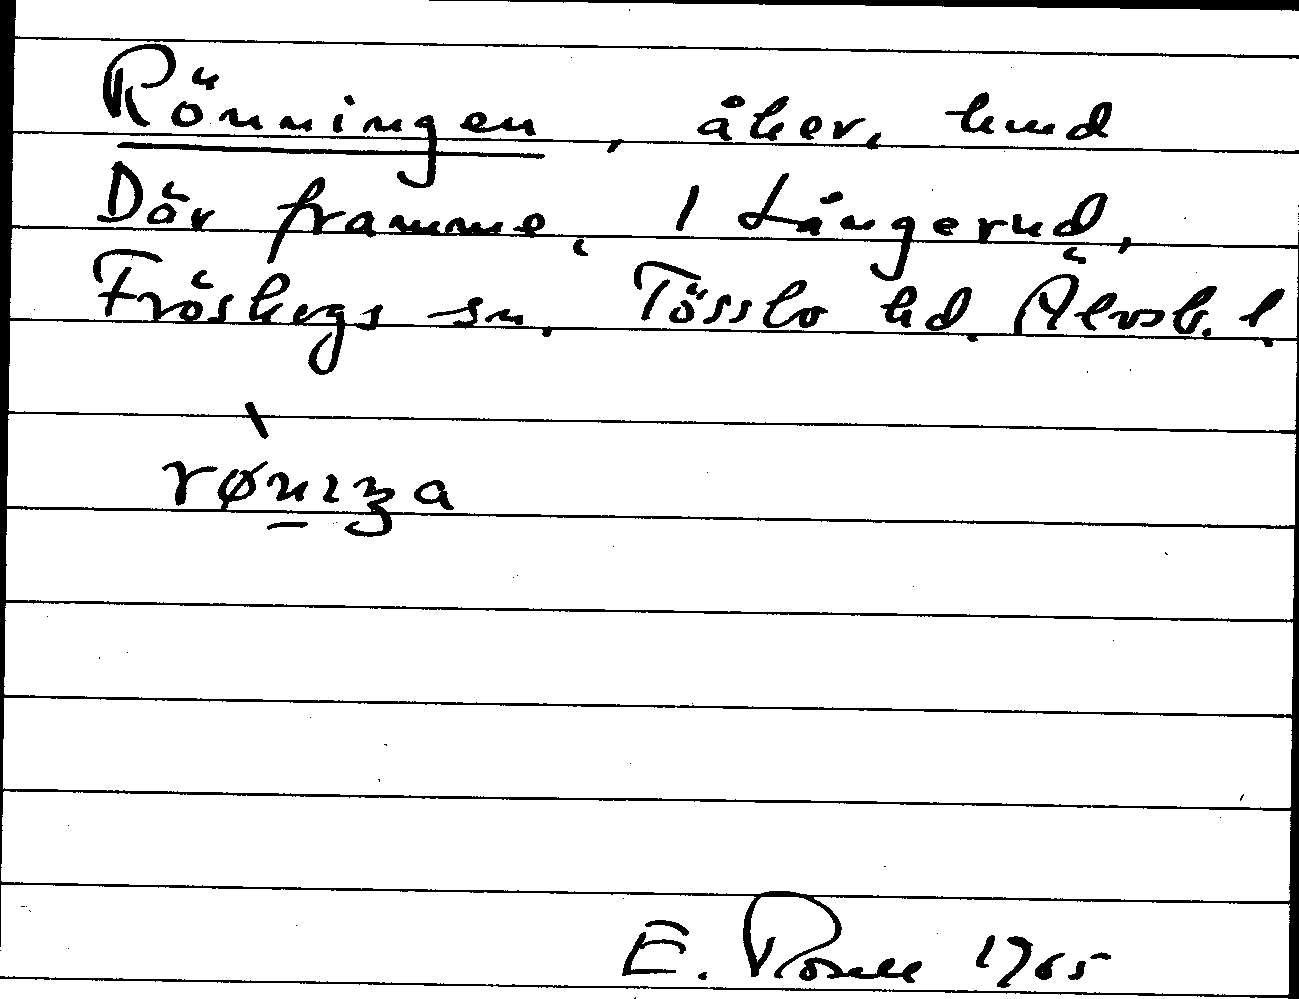 Rönningen, åker, hmd
Där framme. 1 Långerud,
Fröskogs sn. Tössbo hd. Älvsb. l.
rønıŋa
E. 1965